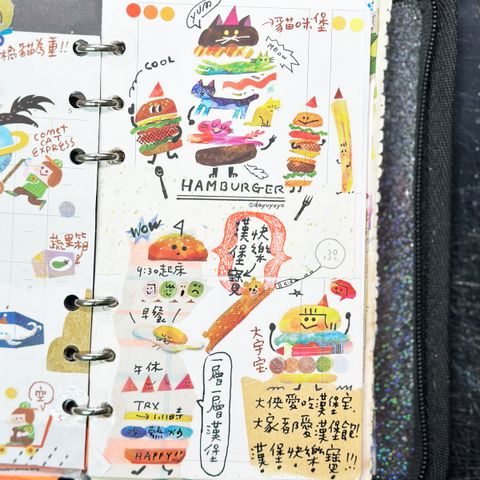 橘貓為重!!
COMET
CAT
EXPRESS
蔬果箱
空
YUM
貓咪堡
MEOW
COOL
HAMBURGER
@dayuyoyo
WOW
快樂
漢堡寶
9:30起床
早餐
午休
TRX
HAPPY!!
一層一層漢堡
大宇宝
大俠愛吃漢堡宝
大家都愛漢堡飽!
漢堡快樂寶!!!